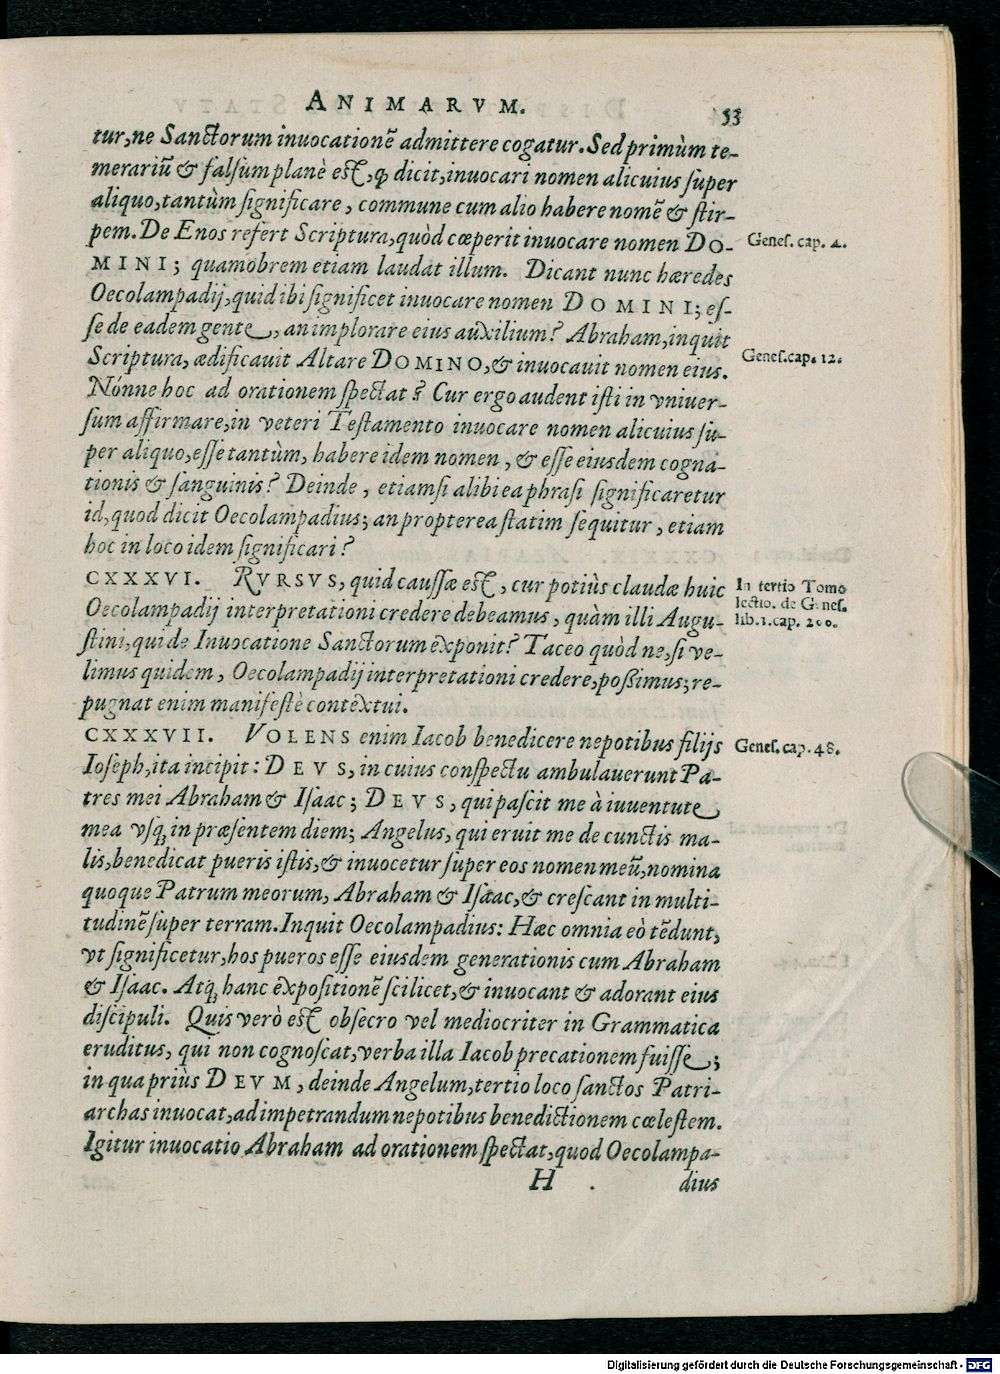 ANIMARVM. 53
tur, ne Sanctorum inuocationẽ admittere cogatur. Sed primùm te-
merariũ & falsum planè est, ꝙ dicit, inuocari nomen alicuius super
aliquo, tantùm significare, commune cum alio habere nomẽ & stir-
pem. De Enos refert Scriptura, quòd cœperit inuocare nomen DO-
Genes. cap. 4.
MINI; quamobrem etiam laudat illum. Dicant nunc hæredes
Oecolampadij, quid ibi significet inuocare nomen DOMINI; es-
se de eadem gente, an implorare eius auxilium? Abraham, inquit
Scriptura, ædificauit Altare DOMINO, & inuocauit nomen eius.
Genes. cap. 12.
Nónne hoc ad orationem spectat? Cur ergo audent isti in vniuer-
sum affirmare, in veteri Testamento inuocare nomen alicuius su-
per aliquo, esse tantùm, habere idem nomen, & esse eiusdem cogna-
tionis & sanguinis? Deinde, etiamsi alibi ea phrasi significaretur
id, quod dicit Oecolampadius; an propterea statim sequitur, etiam
hoc in loco idem significari?
CXXXVI. RVRSVS, quid caussæ est, cur potiùs claudæ huic
Oecolampadij interpretationi credere debeamus, quàm illi Augu-
stini, qui de Inuocatione Sanctorum exponit? Taceo quòd ne, si ve-
limus quidem, Oecolampadij interpretationi credere, poßimus; re-
pugnat enim manifestè contextui.
In tertio Tomo
lectio. de Genes.
lib. 1. cap. 200.
CXXXVII. VOLENS enim Iacob benedicere nepotibus filijs
Genes. cap. 48.
Ioseph, ita incipit: DEVS, in cuius conspectu ambulauerunt Pa-
tres mei Abraham & Isaac; DEVS, qui pascit me à iuuentute
mea vsꝗ in præsentem diem; Angelus, qui eruit me de cunctis ma-
lis, benedicat pueris istis, & inuocetur super eos nomen meũ, nomina
quoque Patrum meorum, Abraham & Isaac, & crescant in multi-
tudinẽ super terram. Inquit Oecolampadius: Hæc omnia eò tẽdunt,
vt significetur, hos pueros esse eiusdem generationis cum Abraham
& Isaac. Atꝗ hanc expositionẽ scilicet, & inuocant & adorant eius
discipuli. Quis verò est obsecro vel mediocriter in Grammatica
eruditus, qui non cognoscat, verba illa Iacob precationem fuisse;
in qua priùs DEVM, deinde Angelum, tertio loco sanctos Patri-
archas inuocat, ad impetrandum nepotibus benedictionem cœlestem.
Igitur inuocatio Abraham ad orationem spectat, quod Oecolampa-
H dius
Digitalisierung gefördert durch die Deutsche Forschungsgemeinschaft - DFG